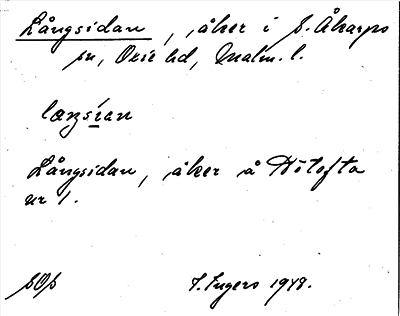 Långsidan, åker i S. Åkarps
sn, Oxie hd, Malm. l.
laŋsian
Långsidan, åker å Hötofta
nr 1.
SOs
I. Ingers 1948.